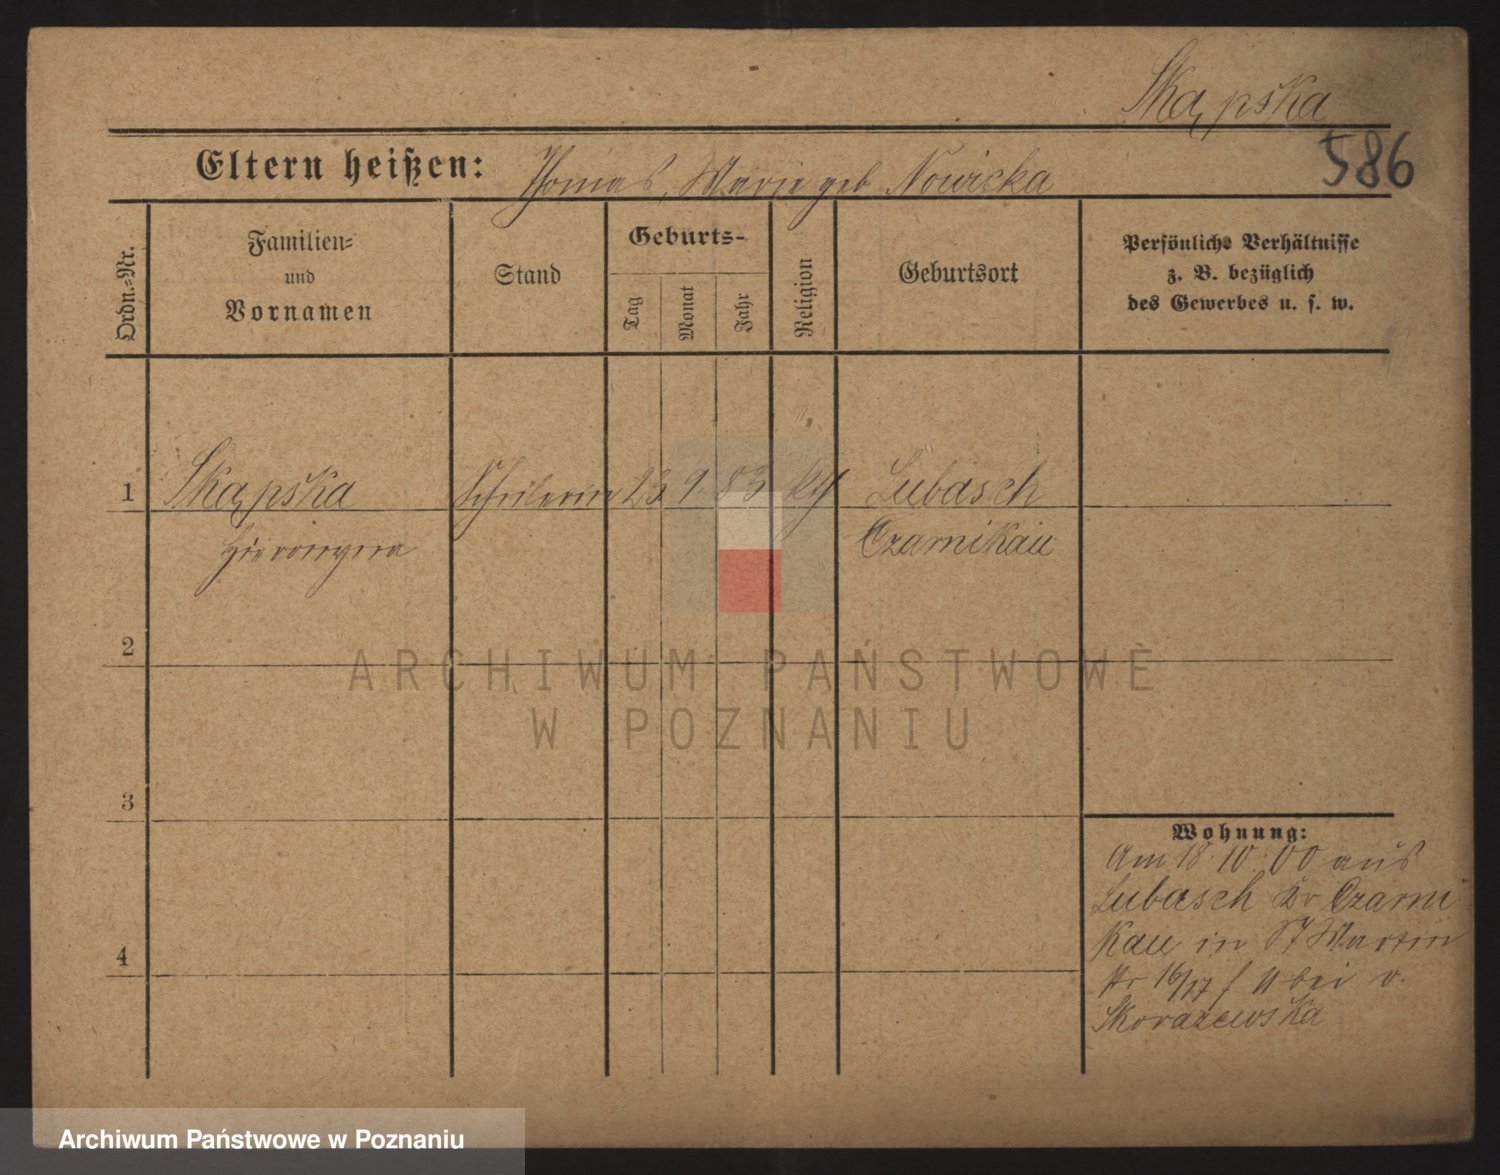 Skąpska
586
Eltern heißen: Thomas, Marie geb Nowicka
Ordn.-Nr.
Familien-
und
Vornamen
Stand
Geburts-
Tag
Monat
Jahr
Religion
Geburtsort
Persönliche Verhältnisse
z. B. bezüglich
des Gewerbes u. s. w.
1 Skąpska Schülerin 23 9 83 Lubasch
Hieronyma Czarnikau
2
ARCHIWUM PAŃSTWOWE
W POZNANIU
3
4
Wohnung:
Am 18. 10. 00 aus
Lubasch Kr Czarni
kau in St Martin
str 16/17 bei v.
Skorazewska
Archiwum Państwowe w Poznaniu